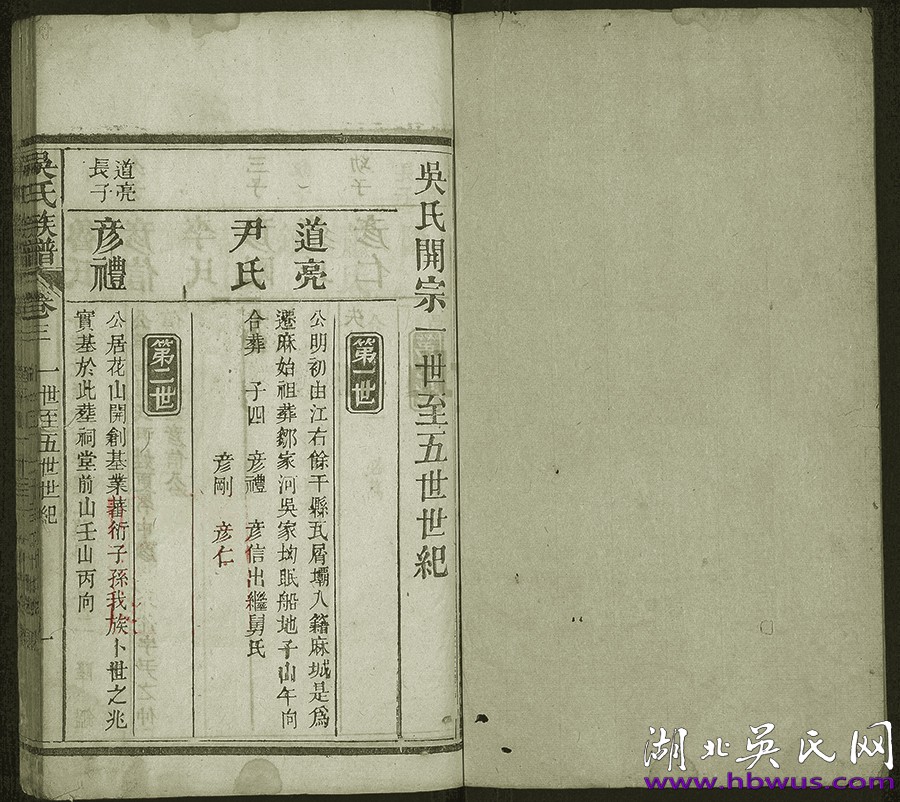 吳氏開宗一世至五世世紀
第一世
道亮
公明初由江右餘干縣瓦屑壩入籍麻城是爲
遷麻始祖葬鄒家河吳家坳眠船地子山午向
尹氏
合葬 子四 彥禮 彥信出繼舅氏
彥剛 彥仁
第二世
道亮
長子
彥禮
公居花山開創基業蕃衍子孫我族卜世之兆
實基於此葬祠堂前山壬山丙向
吳氏族譜 卷三 一世至五世世紀 一
湖北吴氏网
www.hbwus.com